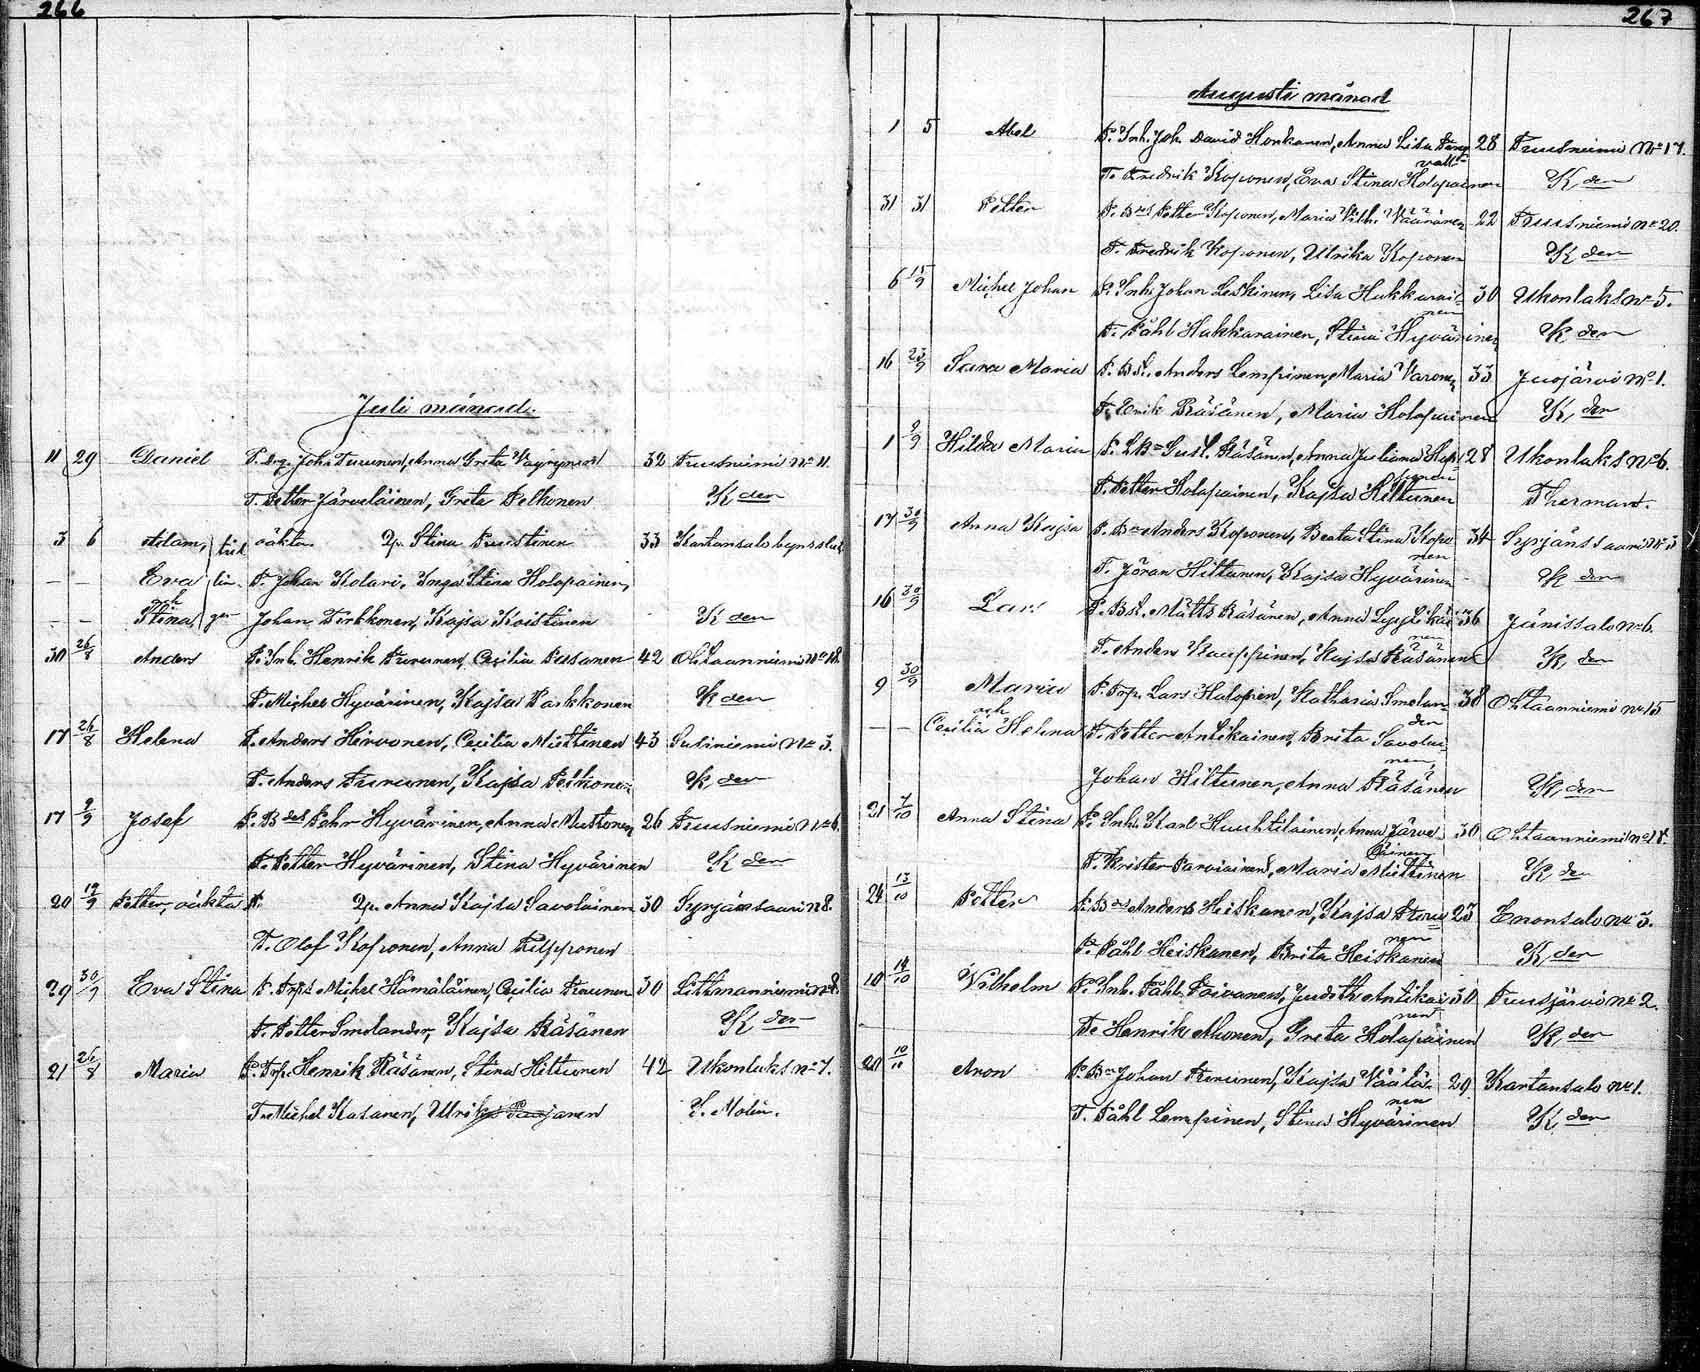 266
Juli månad.
11 29 Daniel P. Drg. Joh. Turunen, Anna Greta Väyrynen 32 Tuusniemi No 11.
T. Petter Järveläinen, Greta Pelkonen K den
3 6 Adam, oäkta Qp. Stina Puustinen 33 Kartansalo
Eva T. Johan Kolari, Inga Stina Holopainen,
Stina, Johan Pirkkonen, Kajsa Koistinen K den
30 26/8 Anders P. Inh. Henrik Turunen, Cecilia Pasanen 42 Ohtaanniemi No 18.
T. Michel Hyvärinen, Kajsa Parkkonen K den
17 26/8 Helena P. Anders Hirvonen, Cecilia Miettinen 43 Susiniemi No 3.
T. Anders Turunen, Kajsa Pelkonen K den
17 2/9 Josef P. Bdes Pehr Hyvärinen, Anna Mustonen 26 Tuusniemi No 6.
T. Petter Hyvärinen, Stina Hyvärinen K den
20 19/9 Petter, oäkta P. Qp. Anna Kajsa Savolainen 30 Syrjänsaari No 8.
T. Olof Koponen, Anna Ripponen
29 30/9 Eva Stina P. Michel Hämäläinen, Cecilia Turunen 30 Litmanniemi No 8.
T. Petter Smolander, Kajsa Räsänen K den
21 26/8 Maria P. Trp. Henrik Räsänen, Stina Hiltunen 42 Ukonlaks No 7.
T. Michel Kasanen, Ulrika Paajanen Molin.
267
Augusti månad
1 5 Abel P. Inh. Joh. David Honkanen, Anna Lisa 28 Tuusniemi No 17.
T. Fredrik Koponen, Eva Stina Holopainen K den
31 31 Petter P. Bdes Petter Koponen, Maria Vilh. Väänänen 22 Tuusniemi No 20.
T. Fredrik Koponen, Ulrika Koponen K den
6 15/9 Michel Johan P. Inh. Johan Leskinen, Lisa Hukkarai- 30 Ukonlaks No 5.
nen
T. Påhl Hukkarainen, Stina Hyvärinen K den
16 23/9 Sara Maria P. Bd. Anders Lempinen, Maria Varonen 33 Juojärvi No 1.
T. Erik Räsänen, Maria Holopainen K den
1 2/9 Hilda Maria P. Gust. Räsänen, Anna Juliana 28 Ukonlaks No 6.
T. Petter Holopainen, Kajsa Hiltunen Therman.
17 30/9 Anna Kajsa P. Bn Anders Koponen, Beata Stina Kopo- 34 Syrjänsaari No 3
nen
T. Jöran Hiltunen, Kajsa Hyvärinen K den
16 30/9 Lars P. Bd. Matts Räsänen, Anna Lyylikäi- 36 Jänissalo No 6.
nen
T. Anders Kauppinen, Kajsa Räsänen K den
9 30/9 Maria P. Trp. Lars Halopien, Katharia Smolan- 38 Ohtaanniemi No 15
och der
Cecilia Helena T. Petter Antikainen, Brita Savolai-
nen,
Johan Hiltunen, Anna Räsänen K den
21 7/10 Anna Stina P. Inh. Karl Huuhtilainen, Anna Järve- 30 Ohtaanniemi No 18.
läinen
T. Krister Parviainen, Maria Miettinen K den
24 13/10 Petter P. Bdes Anders Heiskanen, Kajsa 23 Enonsalo No 3.
nen
T. Påhl Heiskanen, Brita Heiskanen K den
10 14/10 Vilhelm P. Inh. Påhl Toivanen, Judith Antikai- 30 Tuusjärvi No 2.
nen
T. Henrik Ahonen, Greta Holopainen K den
20 10/11 Aron P. Bn Johan Turunen, Kajsa Väätä- 29 Kartansalo No 1.
nen
T. Påhl Lempinen, Stina Hyvärinen K den